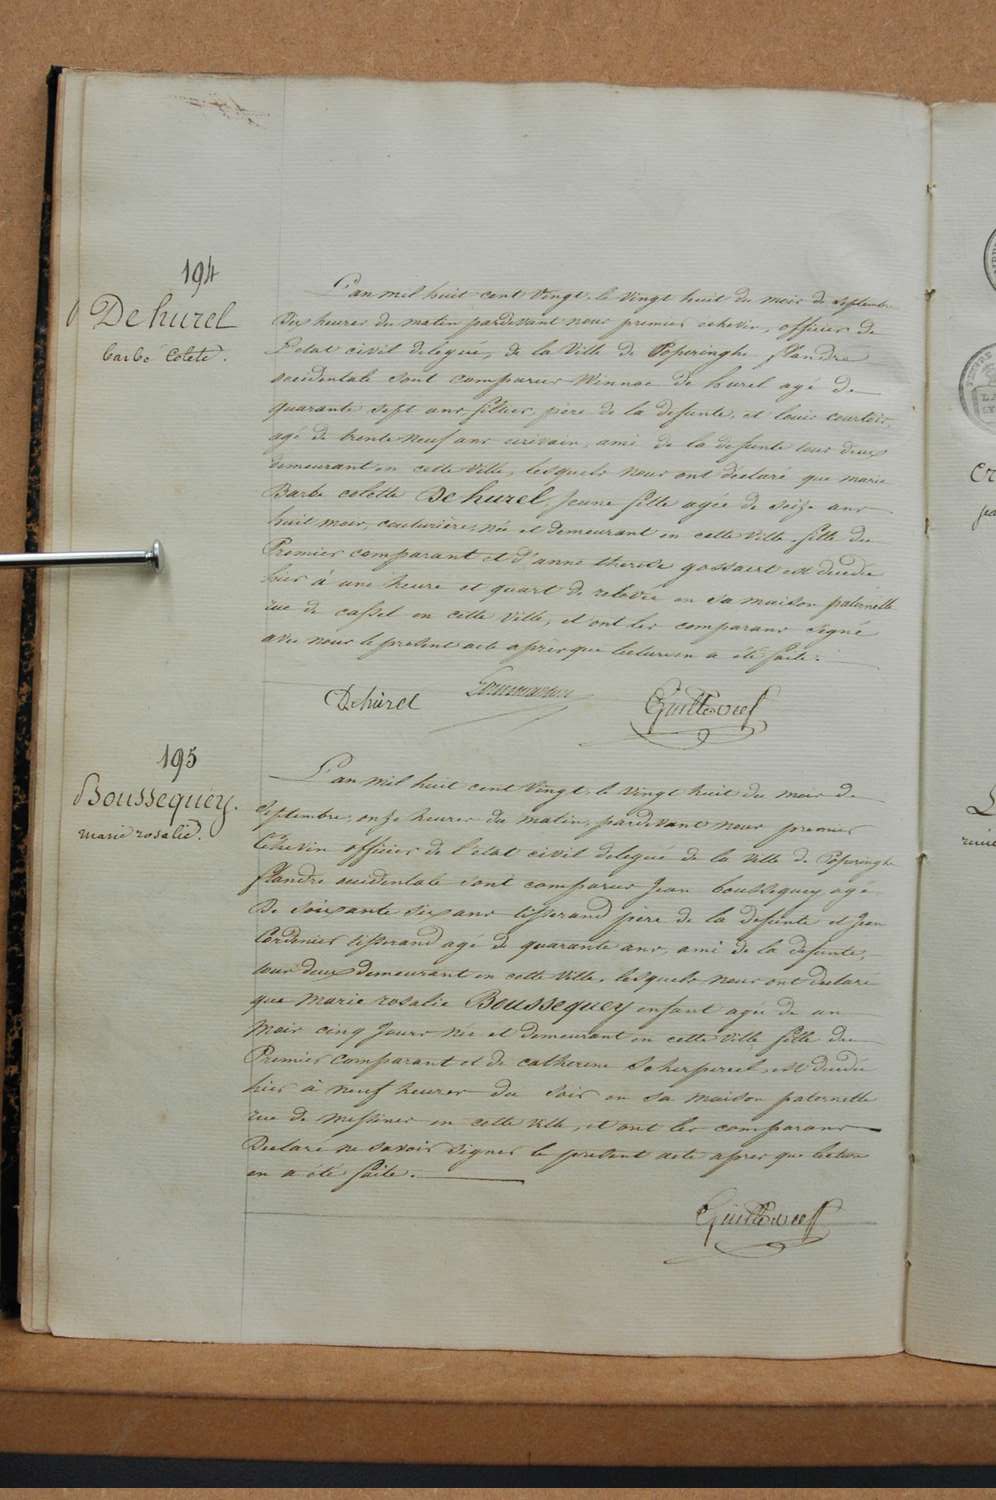 194
Dehurel
barbe Colete.
L'an mil huit cent vingt, le vingt huit du mois de septembre
Dix heures du matin pardevant nous premier echevin, officier de
L'etat civil delegué, de la Ville de Poperinghe flandre
occidentale sont comparus Winnoc de hurel agé de
quarante sept ans filtier, père de la defunte, et louis courtois,
agé de trente neuf ans ecrivain, ami de la defunte tous deux
demeurant en cette ville, lesquels nous ont declaré que marie
Barbe colette Dehurel jeune fille agée de seize ans
huit mois, couturière, née et demeurant en cette ville fille du
Premier comparant et d'anne therese gossaert est decedée
hier à une heure et quart de relevée en sa maison paternelle
rue de cassel en cette ville, et ont les comparans signé
avec nous le present acte après que lecture en a été faite.
Dehurel
195
Boussequey.
marie rosalie.
L'an mil huit cent vingt, le vingt huit du mois de
septembre, onze heures du matin, pardevant nous premier
Echevin officier de l'etat civil delegué de la ville de Poperinghe
flandre occidentale sont comparus Jean boussequey agé
De soixante six ans tisserand père de la defunte et Jean
Cordenier tisserand agé de quarante ans, ami de la defunte,
tous deux demeurant en cette ville, lesquels nous ont declaré
que marie rosalie Boussequey enfant agée de un
mois cinq jours née et demeurant en cette ville fille du
Premier comparant et de catherine Scherpereel, est decedée
hier à neuf heures du soir en sa maison paternelle
rue de messines en cette ville, et ont les comparans
Declaré ne savoir signer le present acte apres que lecture
en a été faite.